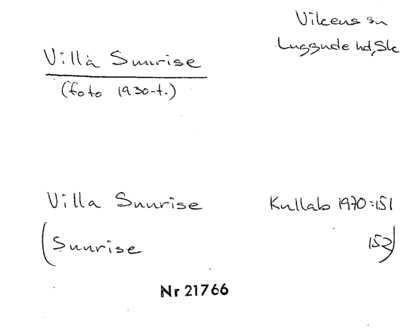 Vikens sn
Luggude hd, Sk
Villa Sunrise
(foto 1930-t.)
Villa Sunrise Kullab 1970:151
(Sunrise 152)
Nr 21766